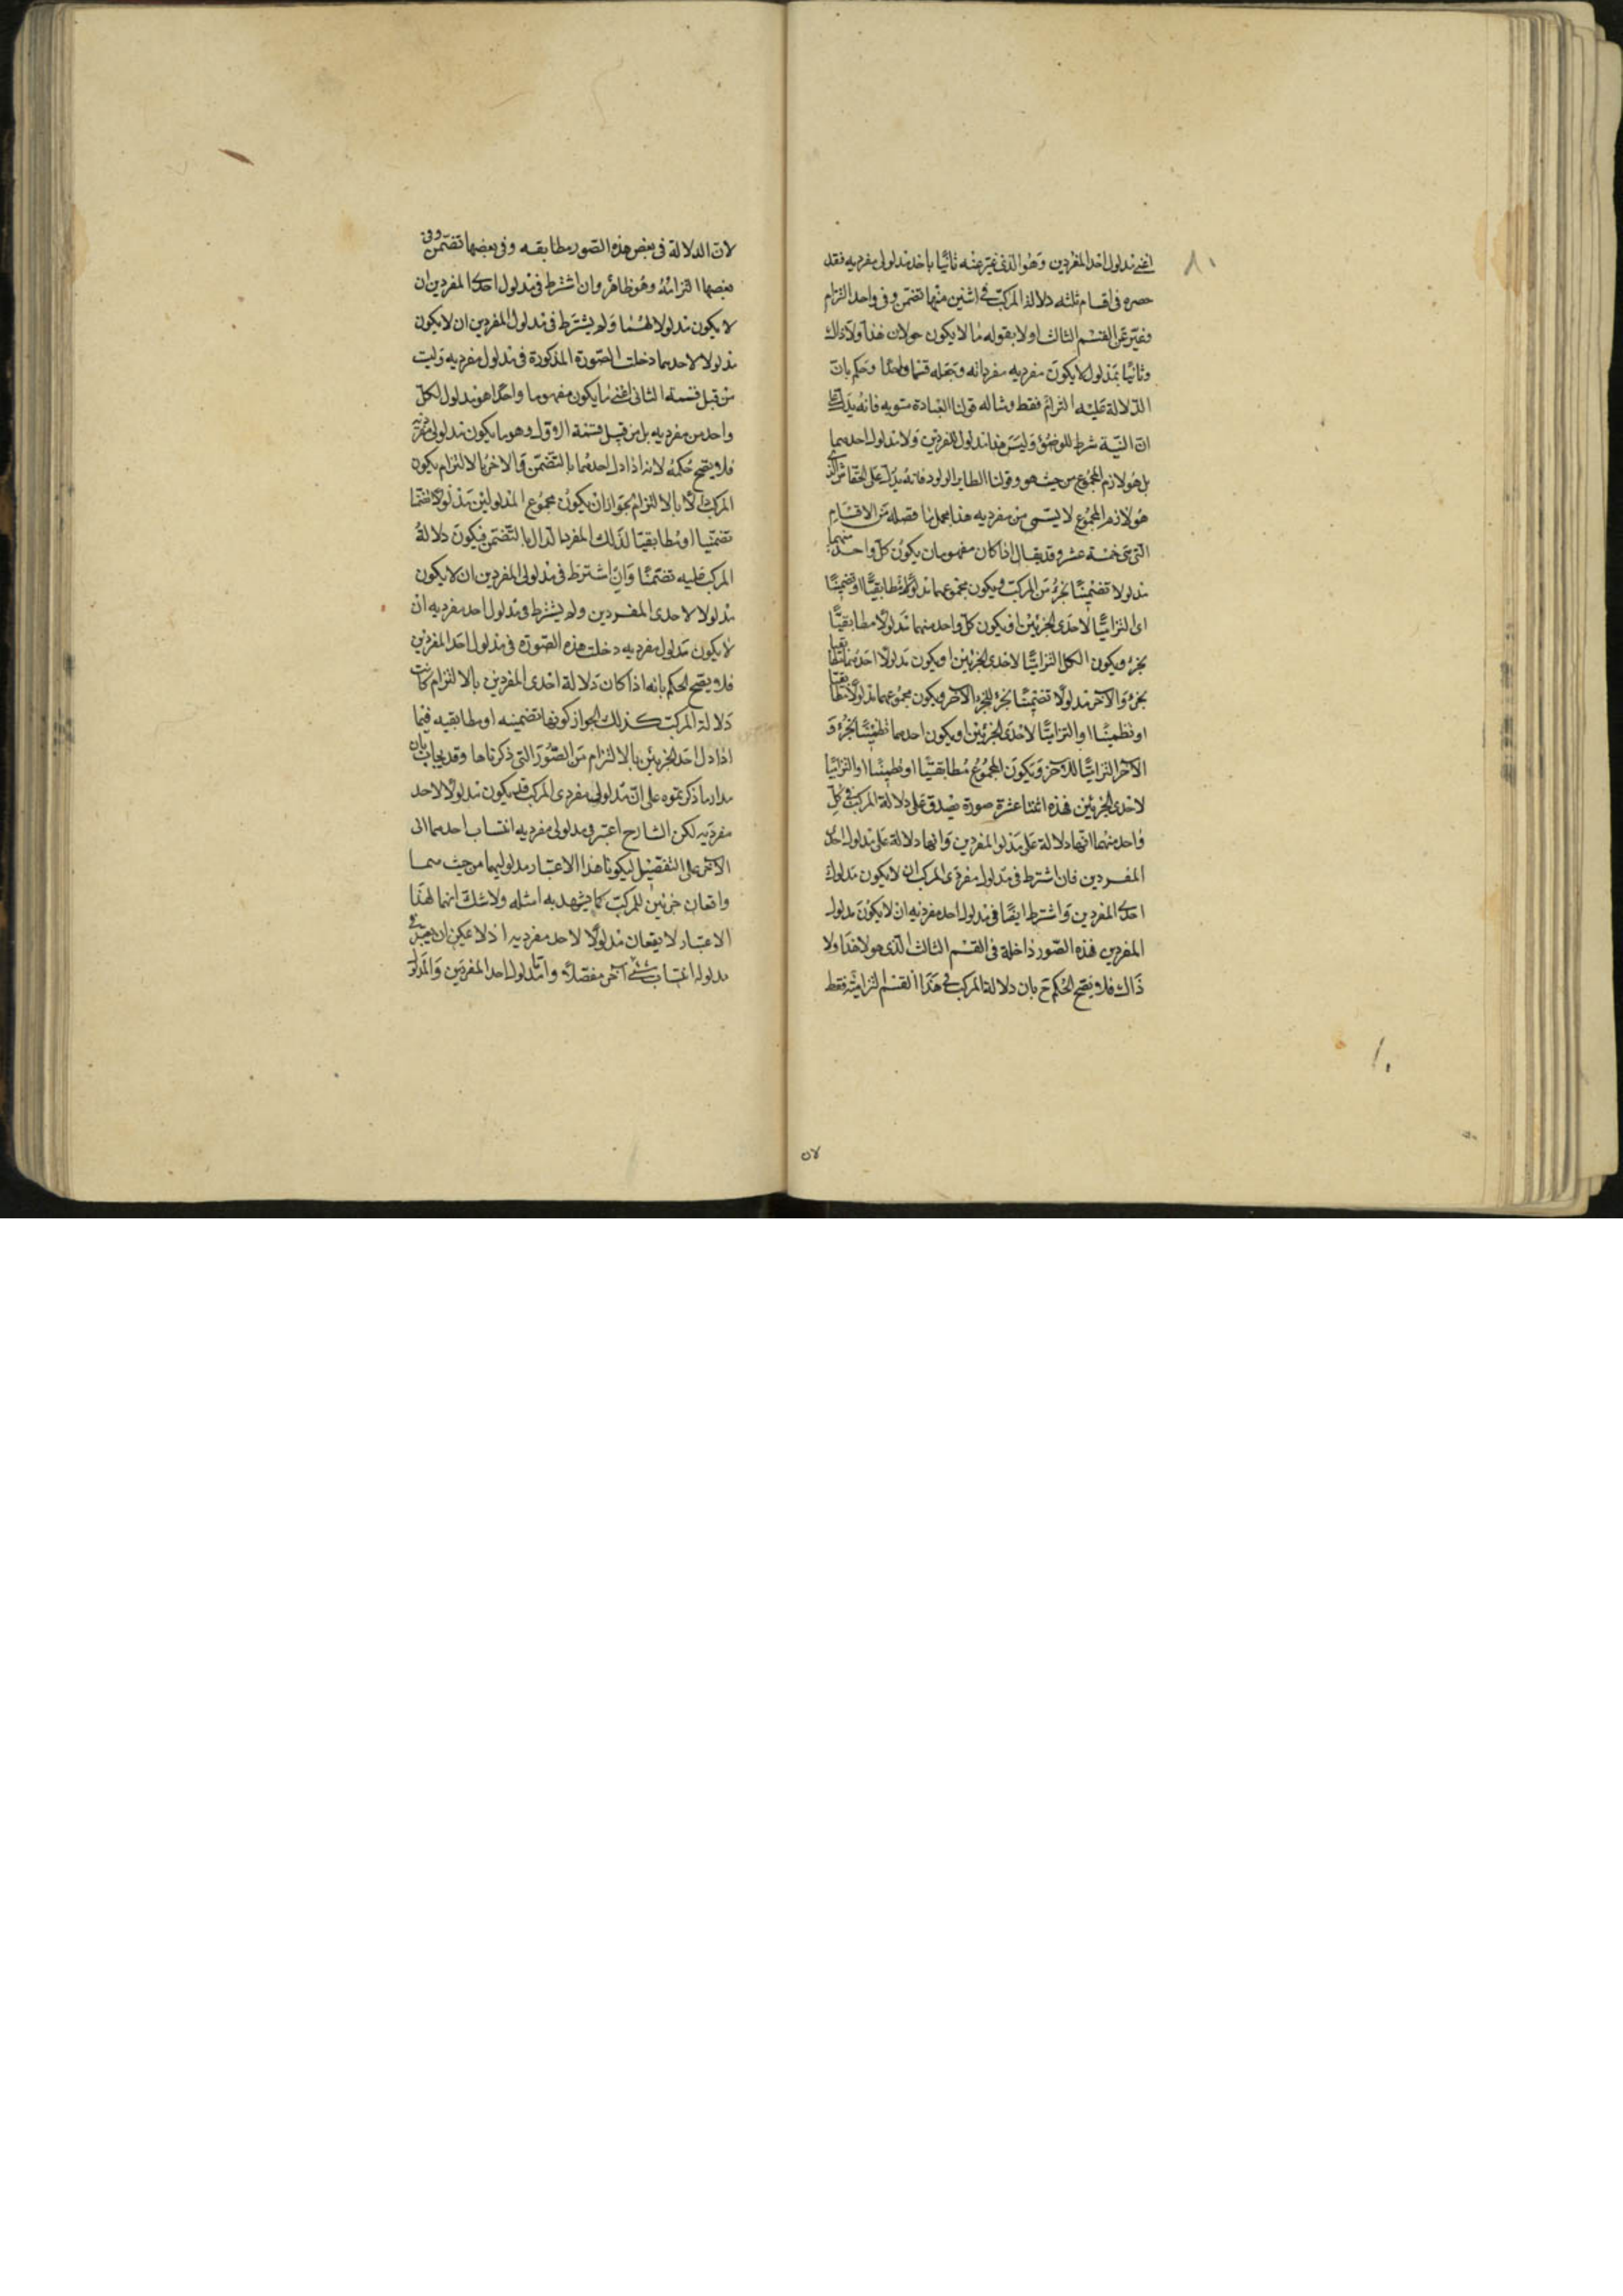 اعنى مدلول احد المفردين وهو الذى عبر عنه ثانيًا باحد مدلولى مفرديه فقد
حصره فى اقسام ثلثه دلالة المركب فى اثنين منها تضمن وفى واحد التزام
فعبر عن القسم الثالث اولا بقوله ما لا يكون هذا ولا ذاك
وثانيًا بمدلول لا يكون مفرديه وجعله قسما واحدًا وحكم بان
الدلالة عليه التزام فقط ومثاله قولنا العبادة منويه فانه يدل على
ان النية شرط للوضوء وليس هذا مدلول المفردين ولا مدلول احدهما
بل هو لازم المجموع من حيث هو وقولنا الطاير الولود فانه يدل على الخفاش الذى
هو لازم المجموع لا لشىء من مفرديه هذا مجمل ما فصله من الاقسام
التى هى خمسة عشر وقد يقال اذا كان مفهومان يكون كل واحد منهما
مدلولا تضمنيًا لجزء من المركب ويكون مجموعهما مدلولًا مطابقيًا او تضمنيًا
او التزاميًا لاحدى الجزئين او يكون كل واحد منهما مدلولًا مطابقيًا
لجزء ويكون الكل التزاميًا لاحدى الجزئين او يكون مدلولًا احدهما مطابقيا
لجزء والآخر مدلولًا تضمنيًا لجزء للجزء الآخر ويكون مجموعهما مدلولًا مطابقيا
او تضمنيًا او التزاميًا لاحدى الجزئين او يكون احدهما تضمنيًا لجزء و
الآخر التزاميًا للآخر ويكون المجموع مطابقيًا او تضمنيًا او التزاميًا
لاحدى الجزئين فهذه اثنتا عشرة صورة يصدق على دلالة المركب فى كل
واحد منها انها دلالة على مدلولى المفردين وانها دلالة على مدلول احد
المفردين فان اشترط فى مدلول مفردى المركب ان لا يكون مدلول
احد المفردين واشترط ايضًا فى مدلول احد مفرديه ان لا يكون مدلول
المفردين فهذه الصور داخلة فى القسم الثالث الذى هو لا هذا ولا
ذاك فلا يصح الحكم ح بان دلالة المركب فى هذا القسم التزامية فقط
لان
لان الدلالة فى بعض هذه الصور مطابقه وفى بعضها تضمن وفى
بعضها التزام وهو ظاهر وان اشترط فى مدلول احد المفردين ان
لا يكون مدلولا لهما ولم يشترط فى مدلول المفردين ان لا يكون
مدلولا لاحدهما دخلت الصورة المذكورة فى مدلول مفرديه وليت
من قبل قسمة الثانى اعنى ما يكون مفهوما واحدًا هو مدلول لكل
واحد من مفرديه بل من قبيل قسمة الاول وهو ما يكون مدلولى مفرديه
فلا يصح حكمه لانه اذا دل احدهما بالتضمن والآخر بالالتزام يكون
المركب دالًا بالالتزام لجواز ان يكون مجموع المدلولين مدلولًا
تضمنيا او مطابقيًا لذلك المفرد الدال بالتضمن فيكون دلالة
المركب عليه تضمنًا وان اشترط فى مدلولى المفردين ان لا يكون
مدلولا لاحدى المفردين ولم يشترط فى مدلول احد مفرديه ان
لا يكون مدلول مفرديه دخلت هذه الصورة فى مدلول احد المفردين
فلا يصح الحكم بانه اذا كان دلالة احدى المفردين بالالتزام كانت
دلالة المركب كذلك لجواز كونها تضمنيه او مطابقيه فيما
اذا دل احد الجزئين بالالتزام من الصور التى ذكرناها وقد يجاب بان
مدار ما ذكرتموه على ان مدلولى مفردى المركب قد يكون مدلولًا لاحد
مفرديه لكن الشارح اعتبر فى مدلولى مفرديه انتساب احدهما الى
الآخر على التفصيل ليكونا هذا الاعتبار مدلوليهما من حيث هما
واقعان جزئين للمركب كما يشهد به امثله ولا شك انهما لهذا
الاعتبار لا يقعان مدلولًا لاحد مفرديه اذ لا يمكن ان يعتبر فى
مدلوله انتساب شىء آخر مفصلًا واما مدلول احد المفردين والمدلول